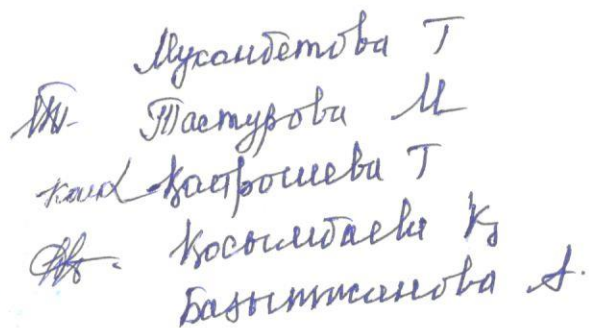 Муханбетова Т
Тастурова М
Қастрошева Т
Қосымбаева Қ
Базытжанова А.